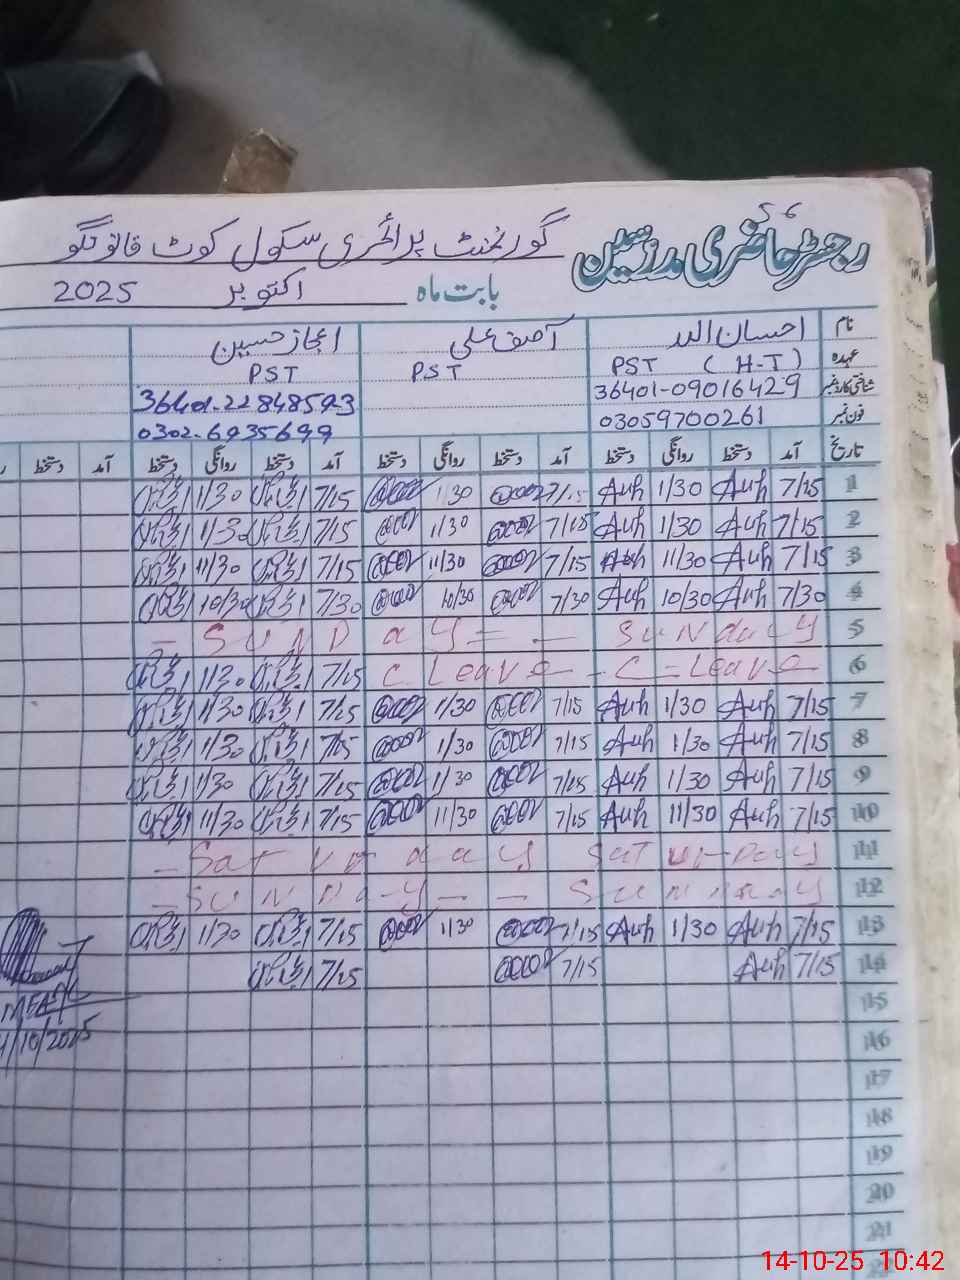 56
رجسٹر حاضری مدرسین گورنمنٹ پرائمری سکول کوٹ قانونگو
بابت ماہ اکتوبر 2025
نام احسان اللہ آصف علی اعجاز حسین
عہدہ PST (H-T) PST PST
شناختی کارڈ نمبر 36401-09016429 36401-22848593
فون نمبر 03059700261 0302-6935699
تاریخ آمد دستخط روانگی دستخط آمد دستخط روانگی دستخط آمد دستخط روانگی دستخط آمد دستخط
1 7/15 Auh 1/30 Auh 7/15 1/30 7/15 11/30
2 7/15 Auh 1/30 Auh 7/15 11/30 7/15 11/30
3 7/15 Auh 11/30 Auh 7/15 11/30 7/15 11/30
4 7/30 Auh 10/30 Auh 7/30 10/30 7/30 10/30
5 - SUNDAY = - SUNDAY
6 7/15 11/30 C Leave - - C = Leave -
7 7/15 Auh 1/30 Auh 7/15 1/30 7/15 1/30
8 7/15 Auh 1/30 Auh 7/15 1/30 7/15 1/30
9 7/15 Auh 1/30 Auh 7/15 1/30 7/15 1/30
10 7/15 Auh 11/30 Auh 7/15 11/30 7/15 11/30
11 - Saturday Saturday
12 - SUNDAY - - SUNDAY
13 7/15 Auh 1/30 Auh 7/15 1/30 7/15 1/30
14 7/15 Auh 7/15 7/15
15
16
17
18
19
20
21
22
/10/2025
14-10-25 10:42